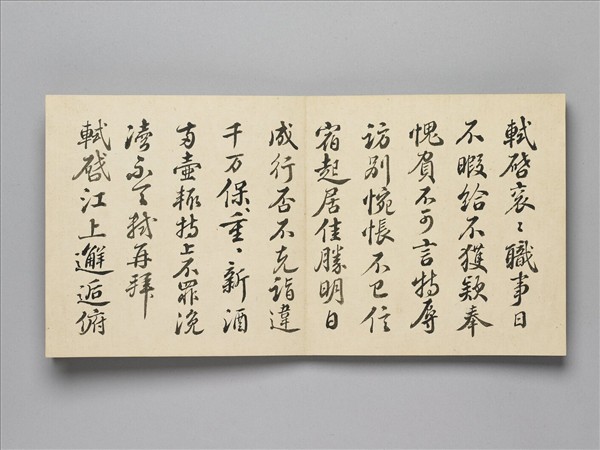 軾啓衮〻職事日
不暇給不獲欵奉
愧負不可言特辱
訪別惋悵不已信
宿起居佳勝明日
成行否不克詣違
千万保〻重〻新酒
两壶輙持上不罪浼
瀆不宣軾再拜
軾啓江上邂逅俯